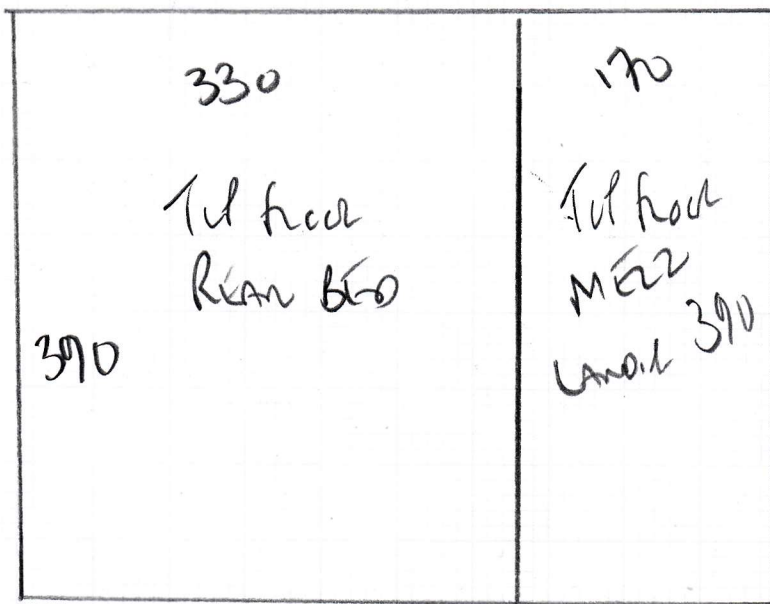 330
Top floor
REAR BED
390
170
Top floor
MEZZ
LANDIN
390